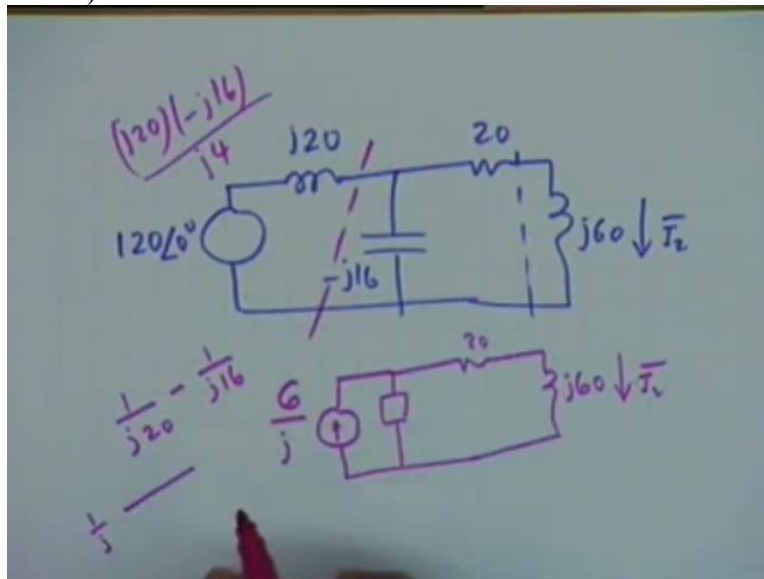 (j20)(-j16)
j4
j20
20
120∠0°
-j16
j60 ↓ I̅₂
1/j20 - 1/j16
6/j
20
j60 ↓ I̅₂
1/j